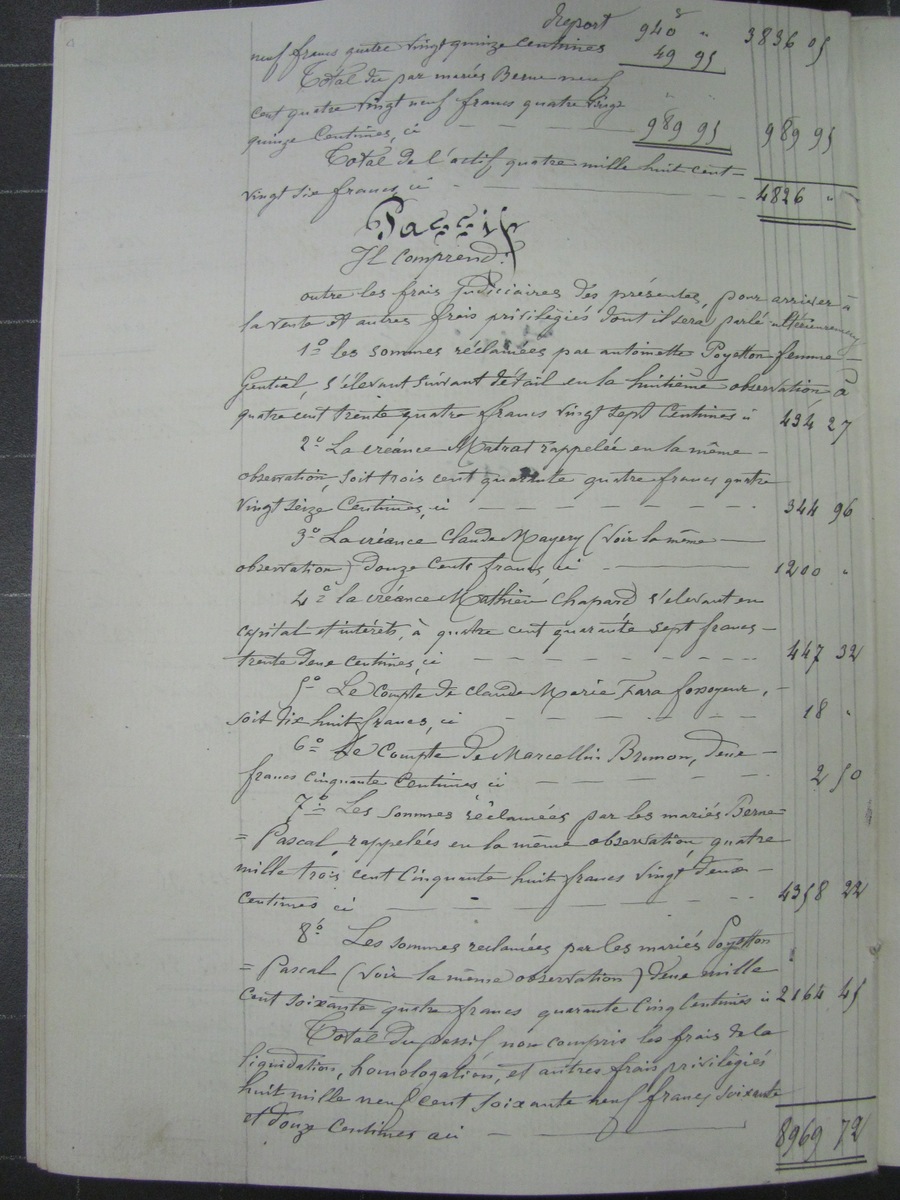 Report 940 " 3836 05
neuf francs quatre vingt quinze centimes 49 95
Total dû par mariés Berne neuf
cent quatre vingt neuf francs quatre vingt
quinze centimes, ci 989 95 989 95
Total de l'actif quatre mille huit cent
vingt six francs, ci 4826 "
Passif
Il comprend:
outre les frais judiciaires des présentes, pour arriver à
la vente et autres frais privilégiés dont il sera parlé ultérieurement
1º les sommes réclamées par antoinette Poyetton femme
Gential, s'élevant suivant détail en la huitième observation à
quatre cent trente quatre francs vingt sept centimes ci 434 27
2º La créance Matrat rappelée en la même
observation, soit trois cent quarante quatre francs quatre
vingt seize centimes, ci 344 96
3º La créance Claude Mayery (voir la même
observation) douze cents francs, ci 1200 "
4º la créance Mathieu Chapard s'élevant en
capital et intérêts, à quatre cent quarante sept francs
trente deux centimes, ci 447 32
5º Le compte de Claude Marie Fara fossoyeur,
soit dix huit francs, ci 18 "
6º Le compte de Marcellin Brunon, deux
francs cinquante centimes ci 2 50
7º Les sommes réclamées par les mariés Berne
= Pascal, rappelées en la même observation quatre
mille trois cent cinquante huit francs vingt deux
centimes ci 4358 22
8º Les sommes réclamées par les mariés Poyetton
= Pascal (voir la même observation) deux mille
cent soixante quatre francs quarante cinq centimes ci 2164 45
Total du passif non compris les frais de la
liquidation, homologation, et autres frais privilégiés
huit mille neuf cent soixante neuf francs soixante
et douze centimes ci 8969 72